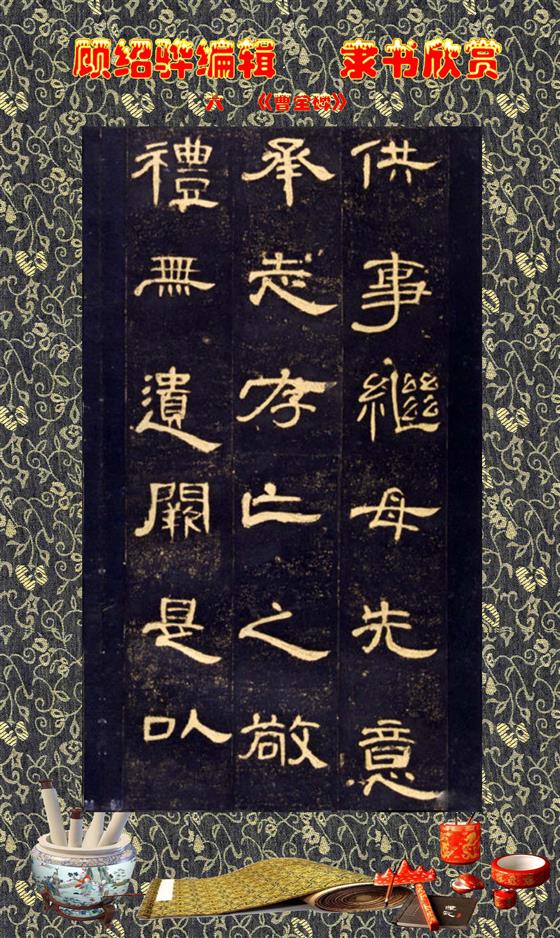 顾绍骅编辑 隶书欣赏
六 《曹全碑》
供事繼母先意
承志存亡之敬
禮無遺闕是以